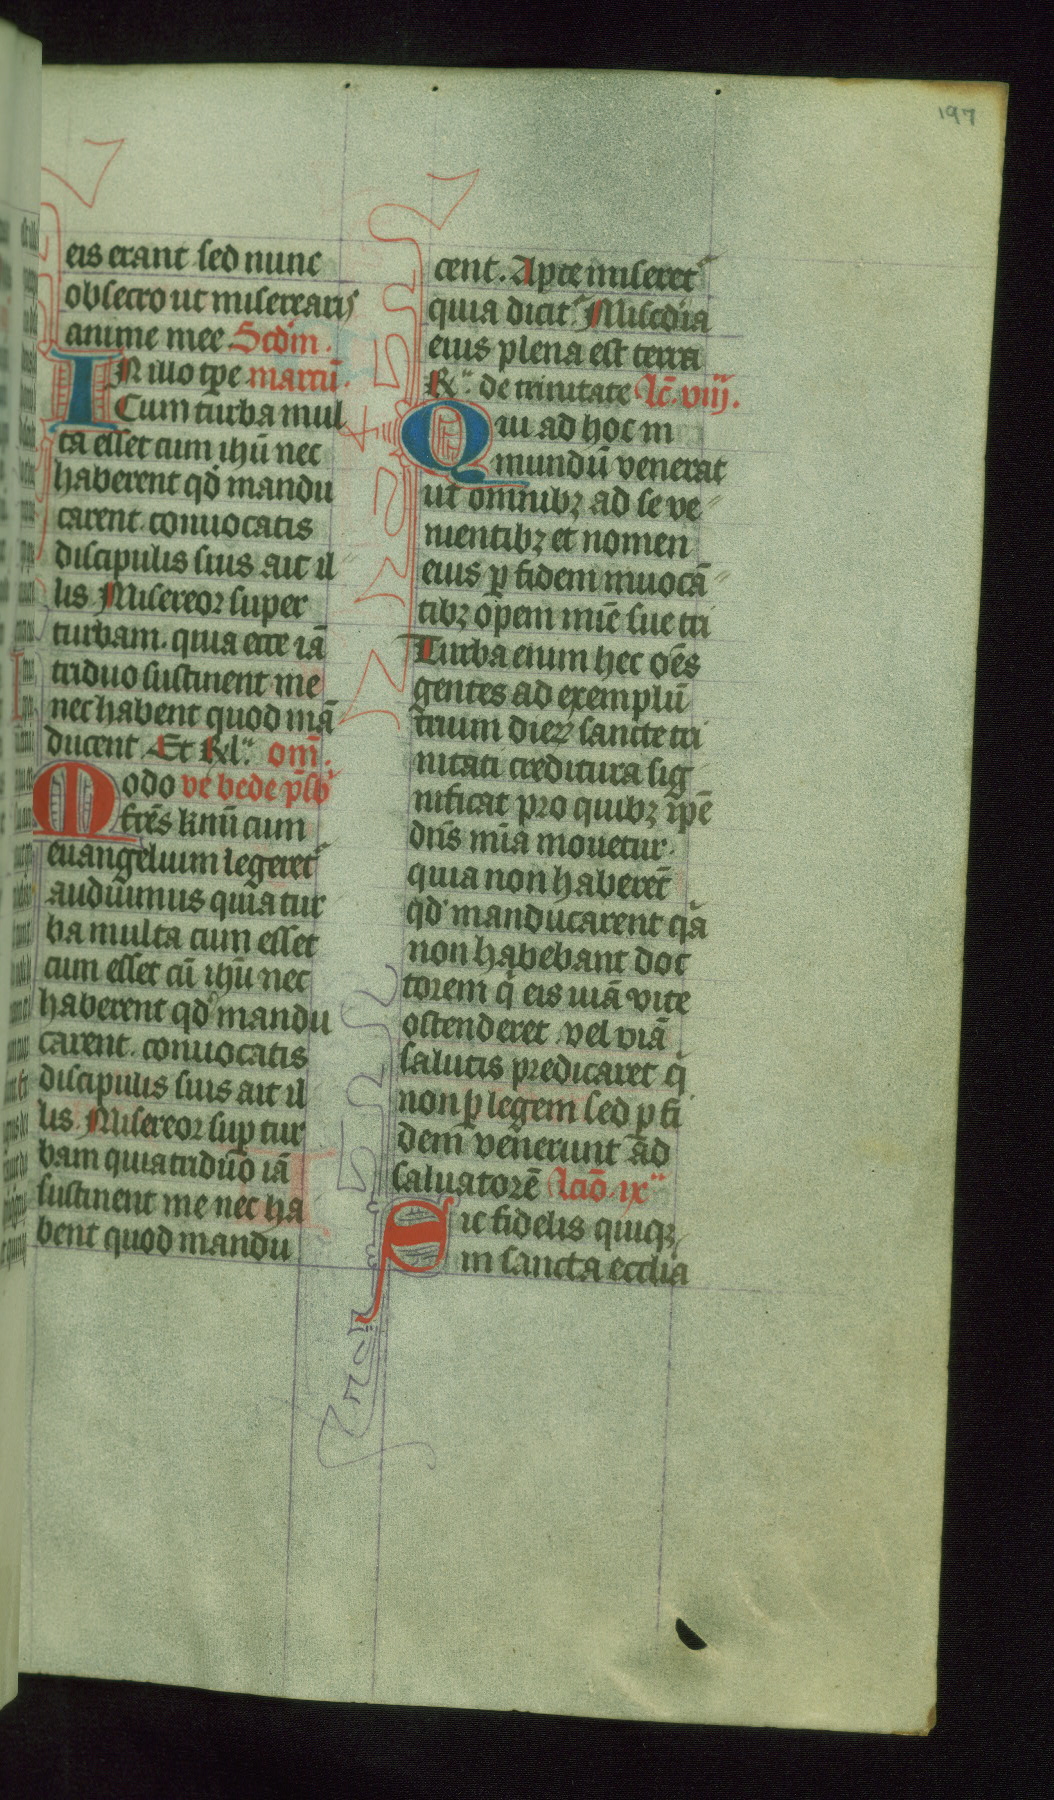 197
eis erant sed nunc
obsecro ut miserearis
anime mee Scdm.
IN illo tp̄e marcū.
Cum turba mul
ta esset cum ihū nec
haberent qd mandu
carent. conuocatis
discipulis suis ait il
lis. Misereor super
turbam. quia ecce iā
triduo sustinent me
nec habent quod mā
ducent. Et Rel. om̄.
Modo ve bede p̄sb
fr̄es kmi cum
euangelium legeret
audiuimus quia tur
ba multa cum esset
cum esset cū ihū nec
haberent qd mandu
carent. conuocatis
discipulis suis ait il
lis. Misereor sup tur
bam quia triduo iā
sustinent me nec ha
bent quod mandu
cent. Apte miseret
quia dicit. Miscdia
eius plena est terra
R. de trinitate lc̄. viij.
Qui ad hoc in
mundū venerat
ut omnibꝫ ad se ve
nientibꝫ et nomen
eius ꝑ fidem inuocā
tibꝫ opem mīe sue tri
Turba enim hec om̄s
gentes ad exemplū
trium dieꝝ sancte tri
nitati creditura sig
nificat pro quibꝫ ip̄e
dn̄s mīa mouetur.
quia non haberēt
qd manducarent qā
non habebant doc
torem q eis uiā vite
ostenderet vel viā
salutis predicaret q
non ꝑ legem sed p fi
dem venerunt ad
saluatorē lcio ix
Sic fidelis quiqꝫ
in sancta ecclia